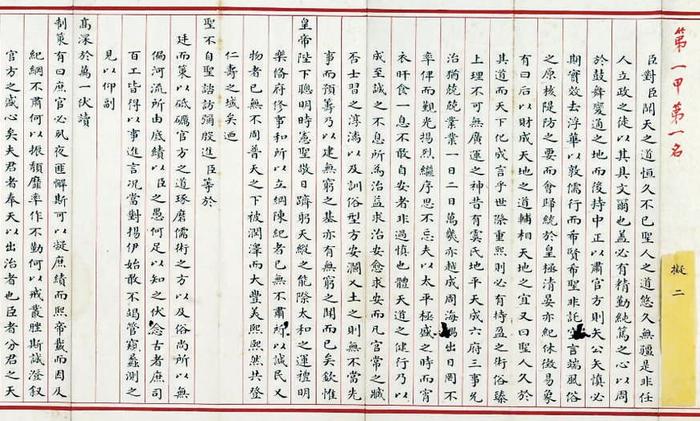 第一甲第一名
擬二
臣對臣聞天之道恒久不已聖人之道悠久無疆是非任
人立政之徒以其具文爾也蓋必有精勤純篤之心以周
於鼓舞慶適之地而後持中正以肅官方則矢公矢慎必
期實效去浮華以敦儒行而希賢希聖非託空言端風俗
之原核隄防之要而會歸統於皇極清晏亦紀休徵易象
有曰后以財成天地之道輔相天地之宜又曰聖人久於
其道而天下化成言乎世際重熙則必有持盈之術俗臻
上理不可無廣運之神昔有虞氏地平天成六府三事允
治猶兢兢業業一日二日萬幾亦越成周海隅出日罔不
率俾而覲光揚烈繼序思不忘夫以太平極盛之時而宵
衣旰食一息不敢自安者非過慎也體天道之健行乃以
成至誠之不息所為治益求治安愈求安而凡官常之臧
否士習之淳漓以及訓俗型方安瀾乂土之則無不當先
事而預籌乃以建無窮之基亦有無窮之聞而已矣欽惟
皇帝陛下聰明時憲聖敬日躋躬天縱之能際太和之運禮明
樂備府修事和所以立綱陳紀者已無不肅所以諴民乂
物者已無不周普天之下被潤澤而大豐美熙熙然共登
仁壽之域矣迺
聖不自聖諮訪彌殷進臣等於
廷而策以砥礪官方之道琢磨儒術之方以及俗尚所以無
偏河流所由底績以臣之愚何足以知之伏念古者庶司
百工皆得以事進言況當對揚伊始敢不竭管窺蠡測之
見以仰副
高深於萬一伏讀
制策有曰庶官必夙夜匪懈斯可以凝庶績而熙帝載而因及
紀綱不肅何以振頹靡率作不勤何以戒叢脞斯誠澄敘
官方之盛心矣夫君者奉天以出治者也臣者分君之天